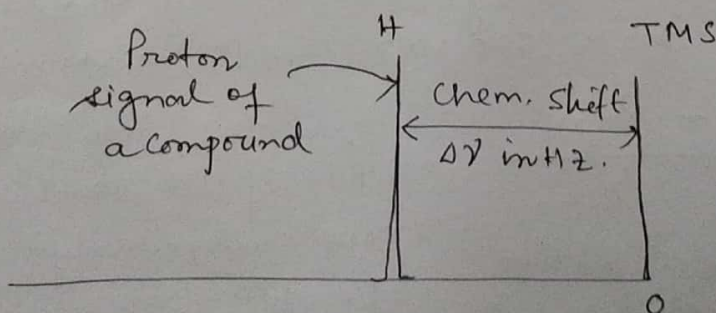 H
TMS
Proton
signal of
a compound
Chem. shift
Δν in Hz.
0